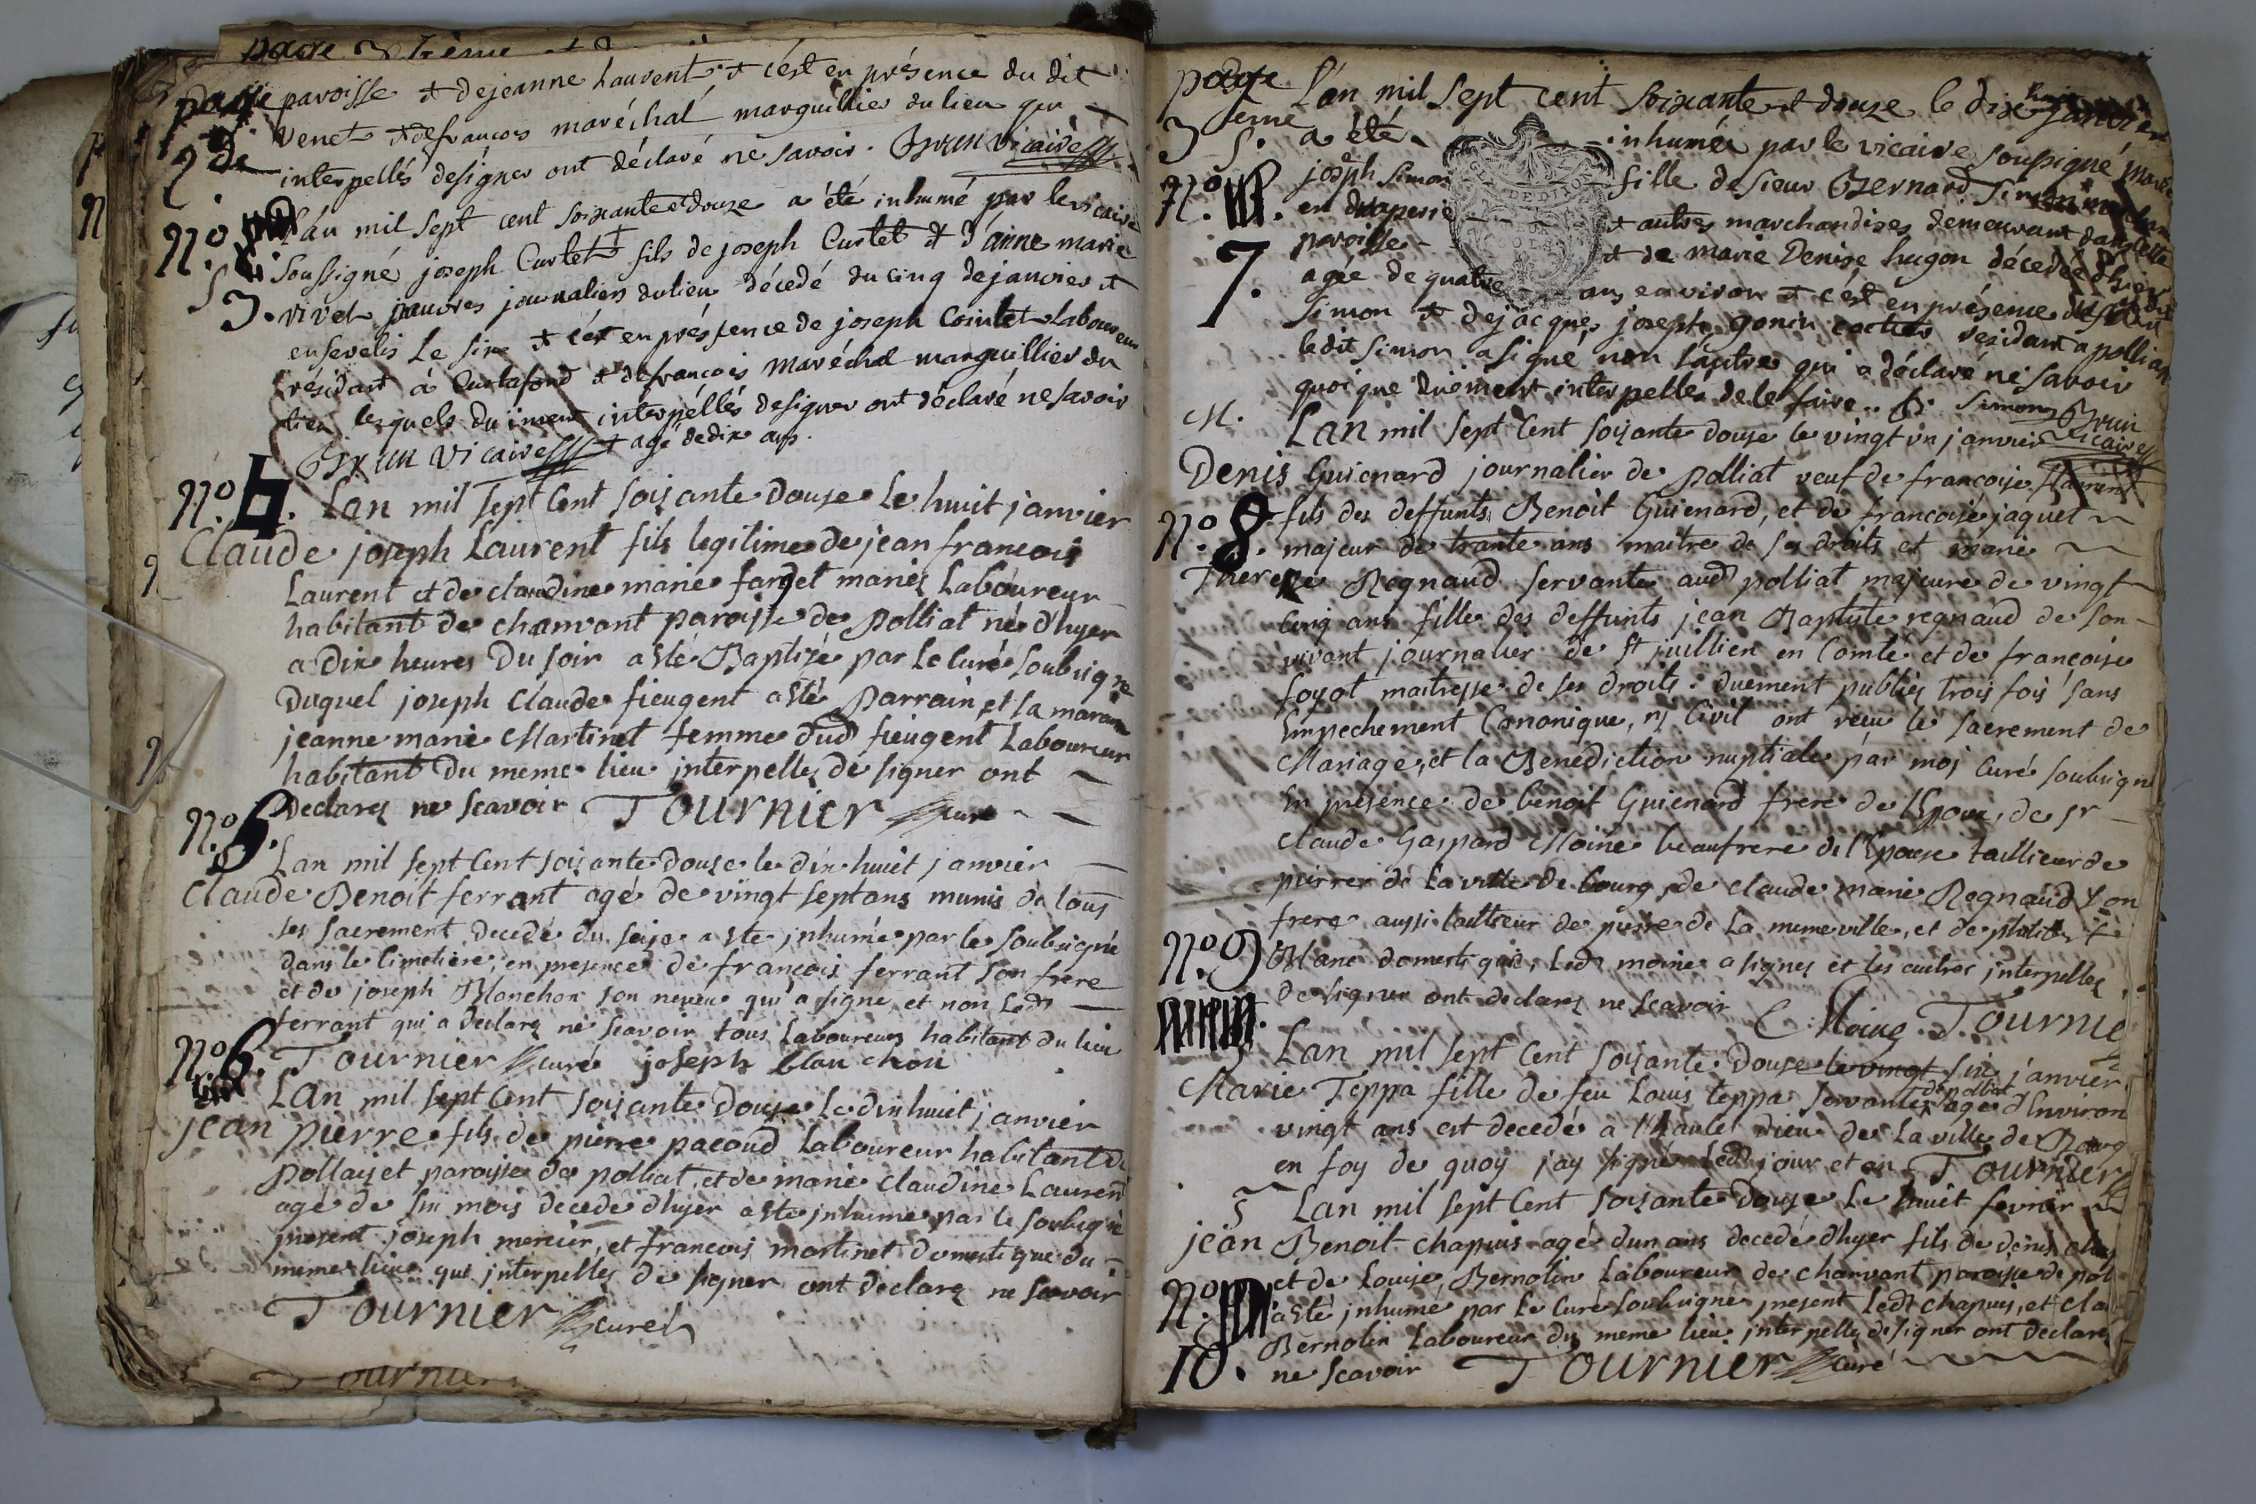 page
2de
paroisse et de jeanne Laurent et c'est en présence du dit
venet et de françois maréchal marguillier du lieu qui
interpellés designer ont déclaré ne savoir. Brun vicaire
N.o
3.
L'an mil sept cent soixante et douze a été inhumé par le vicaire
Soussigné joseph Curtet + fils de joseph Curtet et d'anne marie
vivet pauvres journaliers du lieu décédé du cinq de janvier et
ensevelis le six et c'est en présence de joseph Cointet laboureur
résidant à Curtafond et de françois maréchal marguillier du
lieu lesquels duüment interpéllés designer ont déclaré ne savoir
Brun vicaire + agé de dix ans.
N.o 4. Lan mil sept Cent soisante douse le huit janvier
Claude joseph Laurent fils legitime de jean françois
Laurent et de claudine marie farget mariés Laboureur
habitant de charvant paroisse de Polliat né d'hyer
a Dix heures Du soir a été Baptizé par Le Curé soubsigné
Duquel joseph Claude fieugent a été Parrain et sa maraine
jeanne marie Martinet femme dud fieugent Laboureur
habitant Du meme lieu interpellez de signer ont
Declarez ne scavoir Tournier curé
N.o 5.
Lan mil sept Cent soisante douse le dix huit janvier
Claude Benoit ferrant agé de vingt sept ans munis de tous
ses sacrement decedé du seise a ete jnhumé par le soubsigné
dans le Cimetiere, en presence de françois ferrant son frere
et de joseph Blanchon son neveu qui a signé et non Ledt
ferrant qui a declaré ne scavoir tous Laboureurs habitant du lieu
N.o 6. Tournier curé joseph blanchon
Lan mil sept Cent soisante douse Le dix huit janvier
jean pierre fils de pierre pacoud Laboureur habitant de
Pollay et paroisse de polliat, et de marie claudine Laurent
agé de six mois decede d'hyer a ete jnhumé par le soubsigné
present joseph mercier, et francois martinet domestique du
meme lieu qui jnterpellez de signer ont declarez ne scavoir
Tournier curé
Tournier
page
3eme
L'an mil sept cent soixante et douze le dix janvier
S. a été inhumée par le vicaire soussigné marie
N.o
7.
joseph Simon fille de sieur Bernard Simon
en draperie et autres marchandises demeurant dans cette
paroisse et de marie Denise hugon décédée d'hier
agée de quatre ans environ et c'est en présence du
Simon et de jacques joseph gonin résidant a polliat
ledit Simon a signé non l'autre qui a déclaré ne savoir
quoique duëment interpellés de le faire. B. Simon Brun vicaire
M. Lan mil sept Cent soisante douse le vingt un janvier
Denis Guienard journalier de Polliat veuf de francoise Laurent
N.o 8. fils des deffunts Benoit Guienard, et de francoise jaquet
majeur de trante ans maitre de ses droits et marie
Therese Regnaud servante aud polliat majeure de vingt
Cinq ans fille des deffunts jean Baptiste regnaud de son
vivant journalier de St juillien en Comté et de françoise
foyot maitresse de ses droits. duement publiéz trois fois sans
Empechement Canonique, nj Civil ont reçu le sacrement de
Mariage, et la Benediction nuptiale par moj Curé soubsigné
En presence de benoit Guienard frere de lEpoux, de sr
Claude Gaspard Moine beaufrere de lEpouse taillieur de
pierrer de La ville de bourg, de claude marie Regnaud son
frere aussi taillieur de pierre de La meme ville, et de
N.o 9 Blanc domestique, Ledt moine a signez et les autres jnterpellez
De signer ont declarez ne scavoir C: Moine Tournier
S Lan mil sept Cent soisante Douse le vingt six janvier
Marie Teppa fille de feu Louis teppa servante de polliat agé d'Environ
vingt ans est decedé à l'haulel dieu de La ville de Bourg
en foy de quoy jay signé Ledt jour et an Tournier
S Lan mil sept Cent soisante douse Le huit fevrier
jean Benoit chapuis agé d'un ans decedé d'hyer fils de denis
N.o et de Louise Bernolin Laboureur de charvant paroisse de pol
a été jnhumé par Le Curé soubsigné present Ledt chapuis, et cla
10. Bernolin Laboureur du meme lieu interpellez de signer ont declarez
ne scavoir Tournier curé